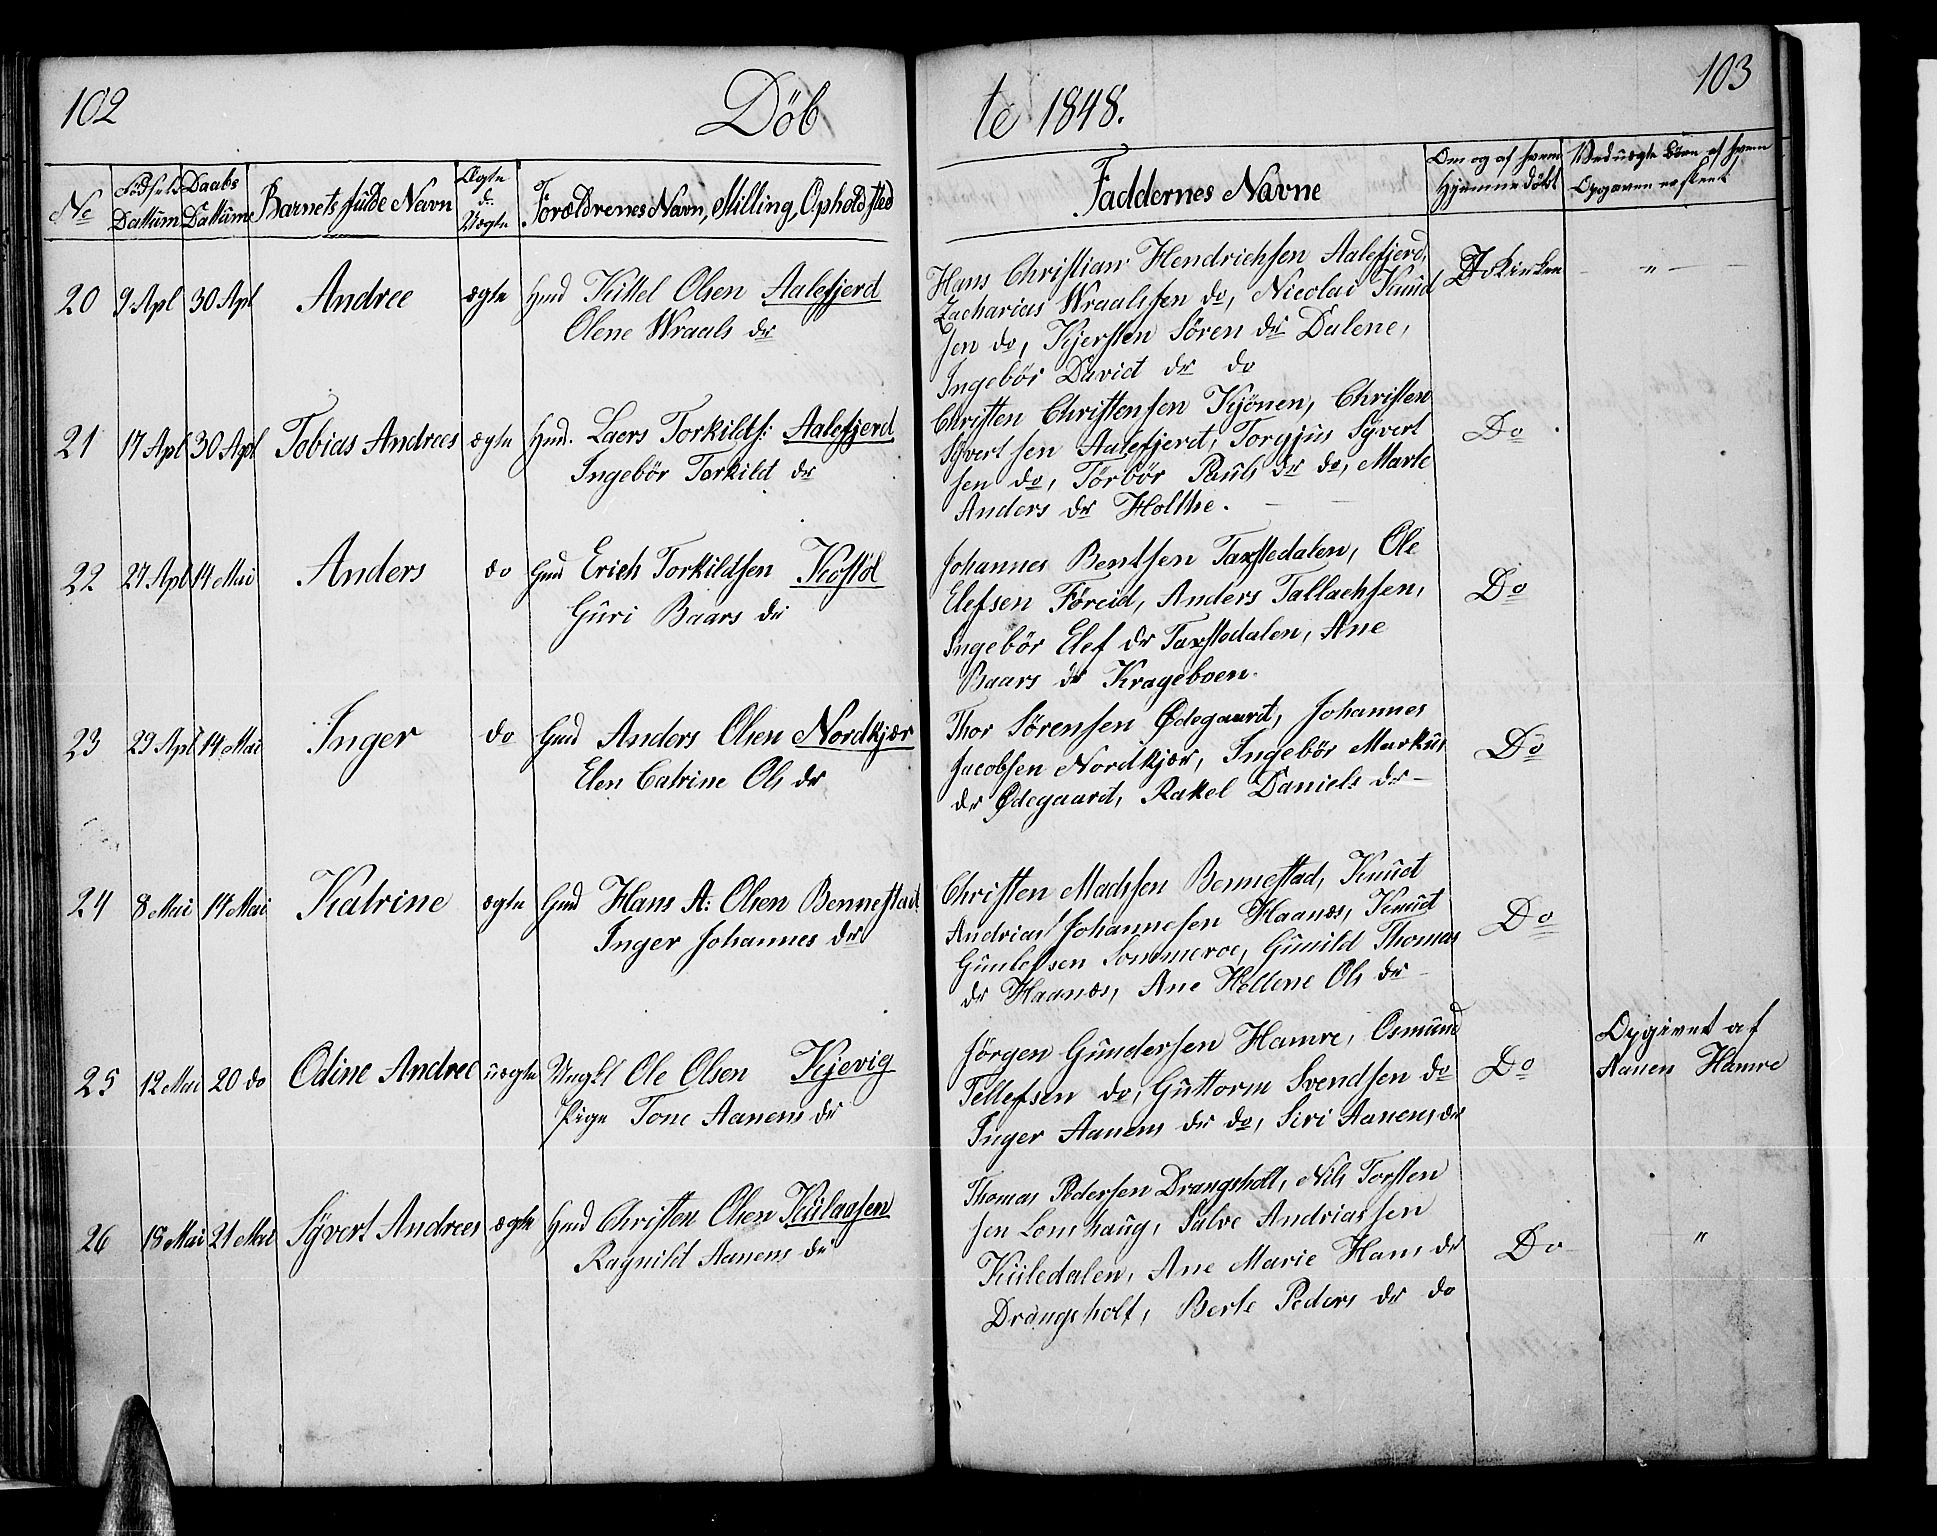 102
Döb
te 1848.
103
No
Födsels Dattüm
Daabs Dattüme
Barnets fulde Navn
Ægte d: Uægte
Forældrenes Navn, Stilling, Opholdsted
Faddernes Navne
Om og af hvem Hjemmedöbt
Ved uægte börn af hvem Opgaven er skeet
20 9 Apl 30 Apl Andree ægte Hmd Kittel Olsen Aalefjerd
Olene Wraals dr
Hans Christian Hendrichsen Aalefjerd,
Zacharias Wraalssen do, Nicolai Knud
sen do, Kjersten Sören dr Dalene,
Ingebör David dr do
I Kirken - " -
21 17 Apl 30 Apl Tobias Andrees ægte Hmd. Laers Torkilds: Aalefjerd
Ingebör Torkild dr
Christen Christensen Kjönen, Christen
Syvertsen Aalefjerd, Torgjus Syvert
sen do, Törbör Pauls dr do, Marte
Anders dr Holthe.
Do
22 27 Apl 14 Mai Anders do Gmd Erich Torkildsen Kostöl
Guri Baars dr
Johannes Bentsen Taxstedalen, Ole
Elefsen Föreid, Anders Tallachsen,
Ingebör Elef dr Taxstedalen, Ane
Baars dr Krageboen.
Do
23 29 Apl 14 Mai Inger do Gmd Anders Olsen Nordkjær
Elen Catrine Ols dr
Thor Sörensen Ødegaard, Johannes
Jacobsen Nordkjær, Ingebör Markus
dr Ødegaard, Rakel Daniels dr -
Do
24 8 Mai 14 Mai Katrine ægte Gmd Hans A: Olsen Bennestad
Inger Johannes dr
Christen Madssen Bennestad, Knud
Andrias Johannesen Haanæs, Knud
Gunlefsen Sommeroe, Gunild Thomas
dr Haanæs, Ane Hellene Ols dr -
Do
25 12 Mai 20 do Odine Andree uægte Ungkl Ole Olsen Kjevig
Pige Tone Aanens dr
Jörgen Gundersen Hamre, Osmund
Tellefsen do, Guttorm Svendsen do
Inger Aanens dr do, Siri Aanens dr
Do
Opgivet af
Aanen Hamre
26 18 Mai 21 Mai Syvert Andrees ægte Hmd Christen Olsen Kulaasen
Ragnild Aanens dr
Thomas Pedersen Drangsholt, Nils Torsten
sen Lomhaug, Salve Andriassen
Kuledalen, Ane Marie Hans dr
Drangsholt, Berte Peders dr do
Do "